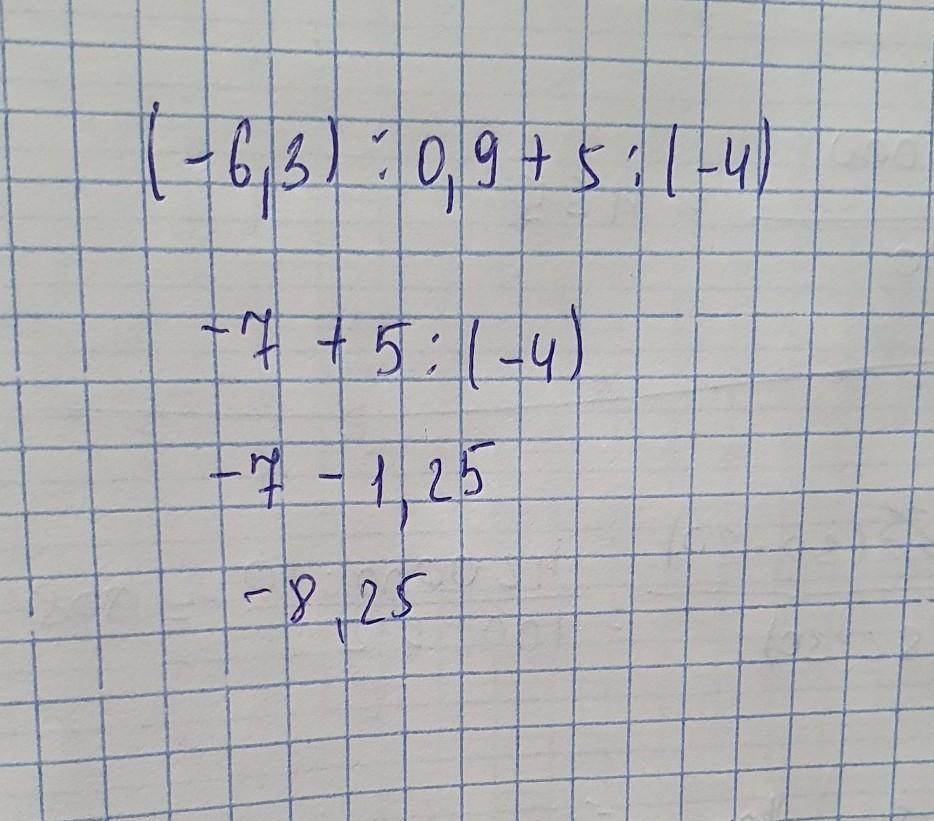 (-6,3) : 0,9 + 5 : (-4)
-7 + 5 : (-4)
-7 - 1,25
-8,25